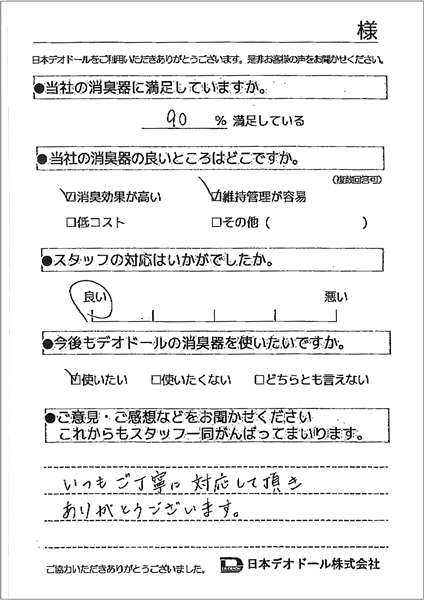 様
日本デオドールをご利用いただきありがとうございます。是非お客様の声をお聞かせください。
●当社の消臭器に満足していますか。
90 % 満足している
●当社の消臭器の良いところはどこですか。
(複数回答可)
☑消臭効果が高い ☑維持管理が容易
□低コスト □その他 ( )
●スタッフの対応はいかがでしたか。
良い 悪い
●今後もデオドールの消臭器を使いたいですか。
☑使いたい □使いたくない □どちらとも言えない
●ご意見・ご感想などをお聞かせください
これからもスタッフ一同がんばってまいります。
いつもご丁寧に対応して頂き
ありがとうございます。
ご協力いただきありがとうございました。 日本デオドール株式会社